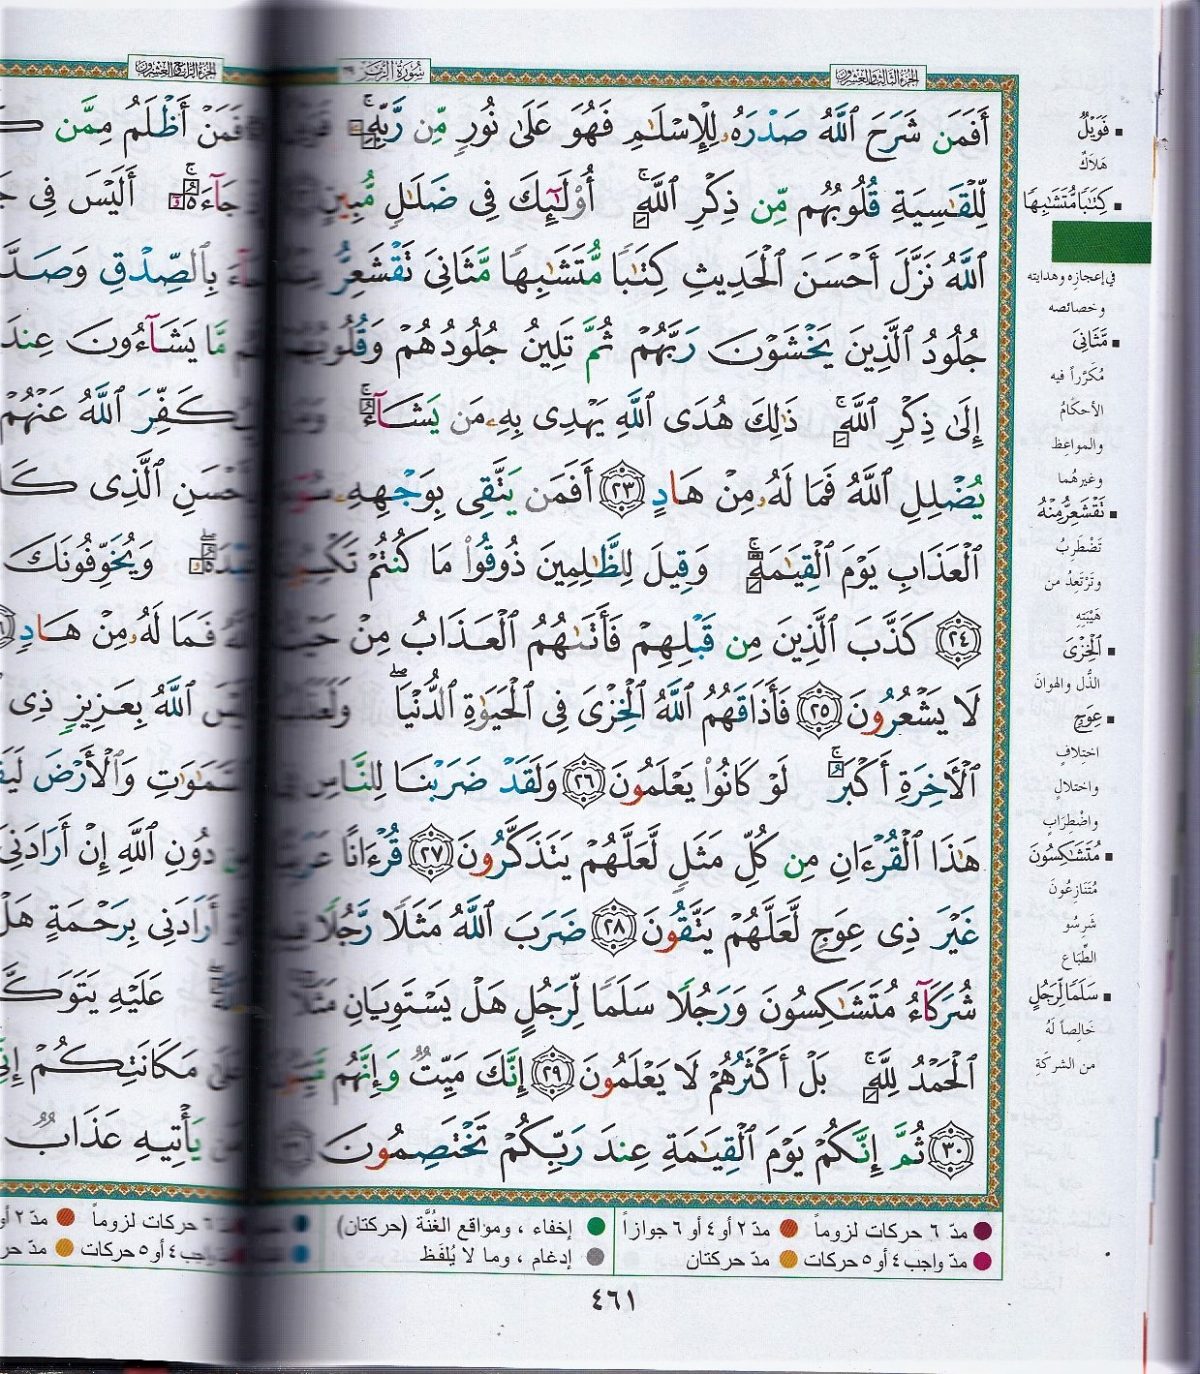 الجزء الثالث والعشرون
سُورَةُ الزُّمَر ٣٩
أَفَمَن شَرَحَ ٱللَّهُ صَدْرَهُۥ لِلْإِسْلَٰمِ فَهُوَ عَلَىٰ نُورٍ مِّن رَّبِّهِۦ ۚ
لِّلْقَٰسِيَةِ قُلُوبُهُم مِّن ذِكْرِ ٱللَّهِ ۚ أُو۟لَٰٓئِكَ فِى ضَلَٰلٍ مُّبِينٍ
ٱللَّهُ نَزَّلَ أَحْسَنَ ٱلْحَدِيثِ كِتَٰبًا مُّتَشَٰبِهًا مَّثَانِىَ تَقْشَعِرُّ
جُلُودُ ٱلَّذِينَ يَخْشَوْنَ رَبَّهُمْ ثُمَّ تَلِينُ جُلُودُهُمْ وَقُلُوبُهُمْ
إِلَىٰ ذِكْرِ ٱللَّهِ ۚ ذَٰلِكَ هُدَى ٱللَّهِ يَهْدِى بِهِۦ مَن يَشَآءُ ۚ
يُضْلِلِ ٱللَّهُ فَمَا لَهُۥ مِنْ هَادٍ ٢٣ أَفَمَن يَتَّقِى بِوَجْهِهِۦ سُوٓءَ
ٱلْعَذَابِ يَوْمَ ٱلْقِيَٰمَةِ ۚ وَقِيلَ لِلظَّٰلِمِينَ ذُوقُوا۟ مَا كُنتُمْ تَكْسِبُونَ
٢٤ كَذَّبَ ٱلَّذِينَ مِن قَبْلِهِمْ فَأَتَىٰهُمُ ٱلْعَذَابُ مِنْ حَيْثُ
لَا يَشْعُرُونَ ٢٥ فَأَذَاقَهُمُ ٱللَّهُ ٱلْخِزْىَ فِى ٱلْحَيَوٰةِ ٱلدُّنْيَا ۖ وَلَعَذَابُ
ٱلْءَاخِرَةِ أَكْبَرُ ۚ لَوْ كَانُوا۟ يَعْلَمُونَ ٢٦ وَلَقَدْ ضَرَبْنَا لِلنَّاسِ فِى
هَٰذَا ٱلْقُرْءَانِ مِن كُلِّ مَثَلٍ لَّعَلَّهُمْ يَتَذَكَّرُونَ ٢٧ قُرْءَانًا عَرَبِيًّا
غَيْرَ ذِى عِوَجٍ لَّعَلَّهُمْ يَتَّقُونَ ٢٨ ضَرَبَ ٱللَّهُ مَثَلًا رَّجُلًا فِيهِ
شُرَكَآءُ مُتَشَٰكِسُونَ وَرَجُلًا سَلَمًا لِّرَجُلٍ هَلْ يَسْتَوِيَانِ مَثَلًا
ٱلْحَمْدُ لِلَّهِ ۚ بَلْ أَكْثَرُهُمْ لَا يَعْلَمُونَ ٢٩ إِنَّكَ مَيِّتٌ وَإِنَّهُم مَّيِّتُونَ
٣٠ ثُمَّ إِنَّكُمْ يَوْمَ ٱلْقِيَٰمَةِ عِندَ رَبِّكُمْ تَخْتَصِمُونَ
فَوَيْلٌ
هَلاَكٌ
كِتَٰبًا مُّتَشَٰبِهًا
في إعجازِه وهدايته
وخصائصه
مَّثَانِىَ
مُكَرَّراً فيه
الأحكامُ
والمواعِظ
وغيرهُما
تَقْشَعِرُّ مِنْهُ
تَضْطَرِبُ
وتَرْتَعِدُ من
هَيْبَتِه
ٱلْخِزْىَ
الذُّل والهوانَ
عِوَجٍ
اختِلافٍ
واختلالٍ
واضْطِرَابٍ
مُتَشَٰكِسُونَ
مُتَنَازِعُونَ
شَرِسُو
الطِّبَاع
سَلَمًا لِّرَجُلٍ
خَالِصاً لَهُ
من الشركَة
مدّ ٦ حركات لزوماً مدّ ٢ أو ٤ أو ٦ جوازاً
مدّ واجب ٤ أو ٥ حركات مدّ حركتان
إخفاء ، ومواقع الغُنَّة (حركتان)
إدغام ، وما لا يُلفَظ
٤٦١
الجزء الرابع والعشرون
فَمَنْ أَظْلَمُ مِمَّن
جَآءَهُۥٓ ۚ أَلَيْسَ فِى
بِٱلصِّدْقِ وَصَدَّ
مَّا يَشَآءُونَ عِندَ
كَفِّرَ ٱللَّهُ عَنْهُمْ
ٱلَّذِى
وَيُخَوِّفُونَكَ
فَمَا لَهُۥ مِنْ هَادٍ
ٱللَّهُ بِعَزِيزٍ ذِى
وَٱلْأَرْضَ
دُونِ ٱللَّهِ إِنْ أَرَادَنِىَ
أَرَادَنِى بِرَحْمَةٍ هَلْ
عَلَيْهِ
مَكَانَتِكُمْ
يَأْتِيهِ عَذَابٌ
٦ حركات لزوماً مدّ ٢ أو
واجب ٤ أو ٥ حركات